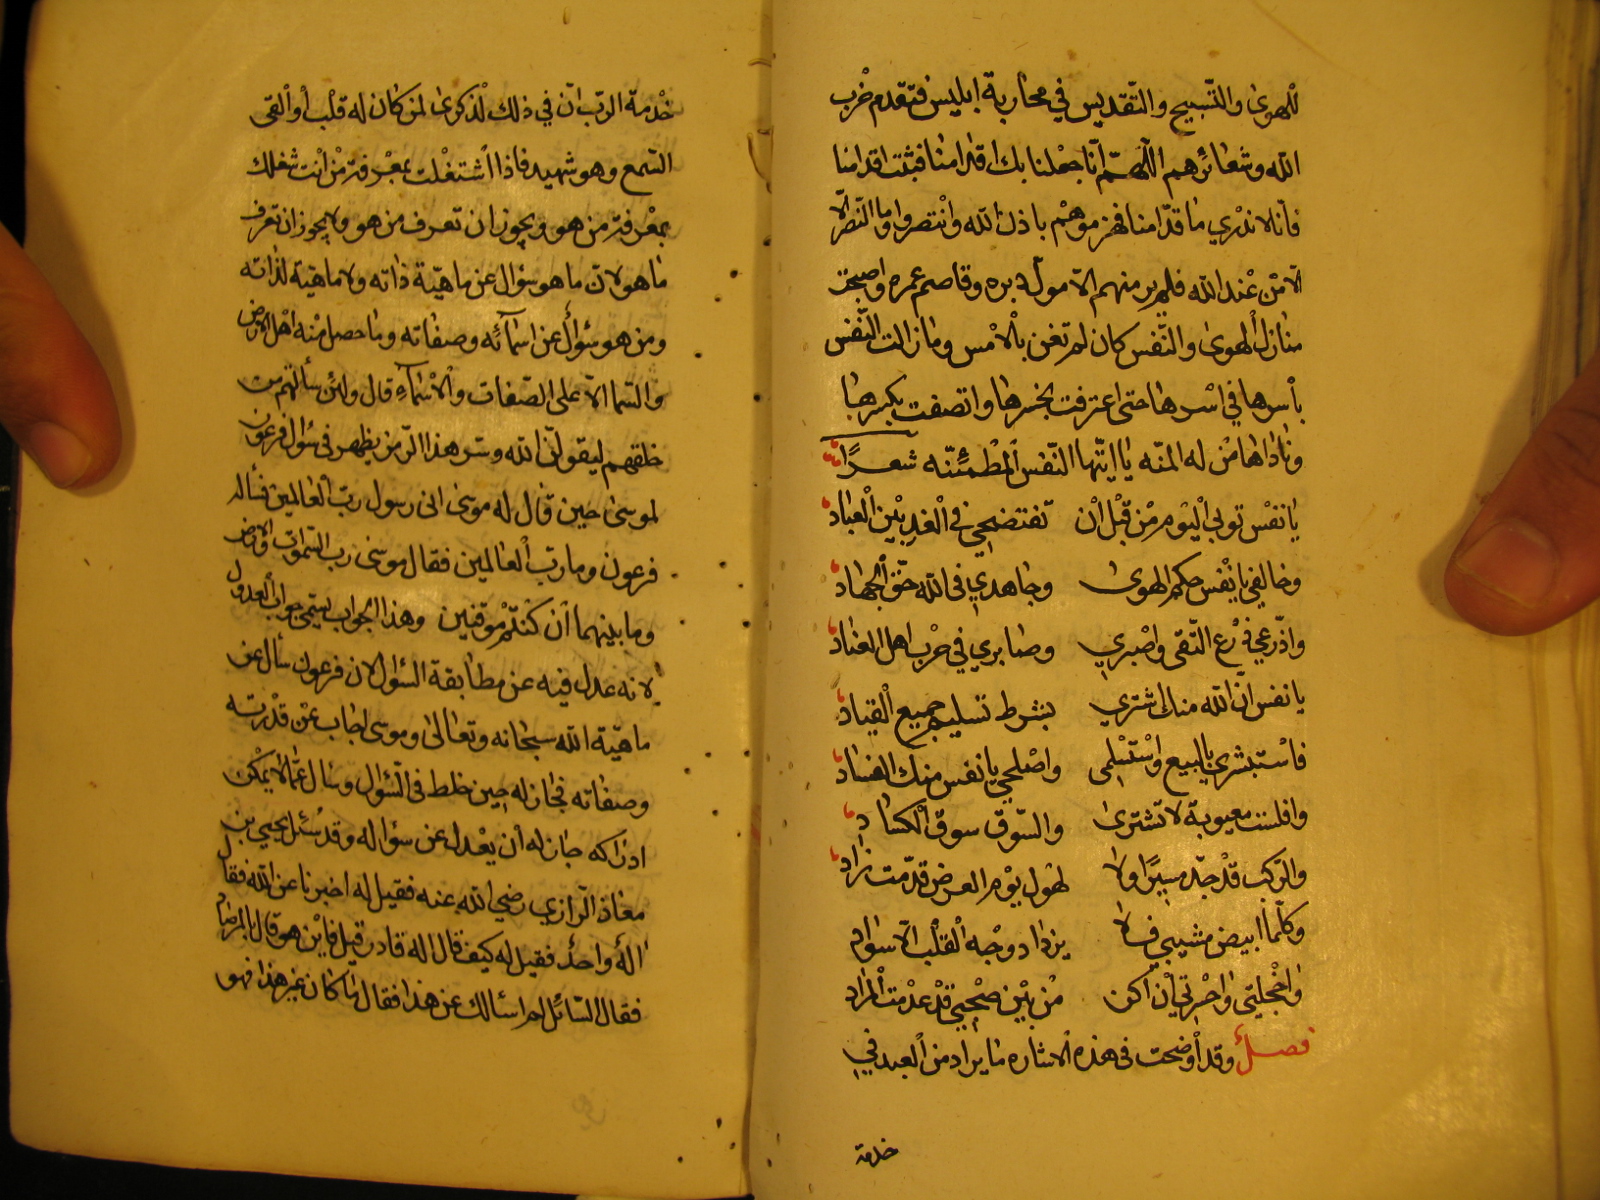 للهوى والتسبيح والتقديس في محاربة ابليس فتقدم حزب
الله وشعائرهم اللهم انا جعلنا بك اقدامنا فثبت اقدامنا
فانا لا ندري ما قدامنا فهزموهم باذن الله وانتصروا وما النصر الا
الا من عند الله فلم ير منهم الا مول دبره وقاصم عمره واصبحت
منازل الهوى والنفس كان لم تغن بالامس وما زالت النفس
باسرها في اسرها حتى اعترفت بخسرها واتصفت بكسرها
وناداها من له المنه يا ايتها النفس المطمئنه شعرًا
يا نفس توبي اليوم من قبل ان تفتضحي في الغد بين العباد
وخالفي يا نفس حكم الهوى وجاهدي في الله حق الجهاد
واذرعي درع التقى واصبري وصابري في حرب اهل العناد
يا نفس ان الله منك اشترى بشرط تسليم جميع القياد
فاستبشري بالبيع واستسلمي واصلحي يا نفس منك الفساد
وافلست معيوبة لا تشترى والسوق سوق الكساد
والركب قد جد مسيرًا ولا لهول يوم العرض قدمت زاد
وكلما ابيض مشيبي فلا يزداد وجه القلب الا سواد
واخجلتي واحسرتي ان اكن من بين صحبي قد عدمت المراد
فصل وقد اوضحت في هذه الاشاره ما يراد من العبد في
خدمة
خدمة الرب ان في ذلك لذكرى لمن كان له قلب او القى
السمع وهو شهيد فاذا اشتغلت بمعرفة من انت شغلك
بمعرفة من هو ويجوز ان تعرف من هو ولا يجوز ان تعرف
ما هو لان ما هو سؤال عن ماهية ذاته ولا ماهية لذاته
ومن هو سؤال عن اسمائه وصفاته وما حصل منه اهل الارض
والسما الا على الصفات والاسماء قال ولئن سألتهم من
خلقهم ليقولن الله وسر هذا الرمز يظهر في سؤال فرعون
لموسى حين قال له موسى انى رسول رب العالمين فساله
فرعون وما رب العالمين فقال موسى رب السموات والارض
وما بينهما ان كنتم موقنين وهذا الجواب يسمى جواب العدول
لانه عدل فيه عن مطابقة السؤال لان فرعون سأل عن
ماهية الله سبحانه وتعالى وموسى اجاب عن قدرته
وصفاته فجاز له حين خلط في السؤال وسال عما لا يمكن
ادراكه جاز له ان يعدل عن سؤاله وقد سئل يحيى بن
معاذ الرازي رضي الله عنه فقيل له اخبرنا عن الله فقال
اله واحد فقيل له كيف قال اله قادر قيل فاين هو قال بالمرصاد
فقال السائل لم اسألك عن هذا فقال ما كان غير هذا فهو